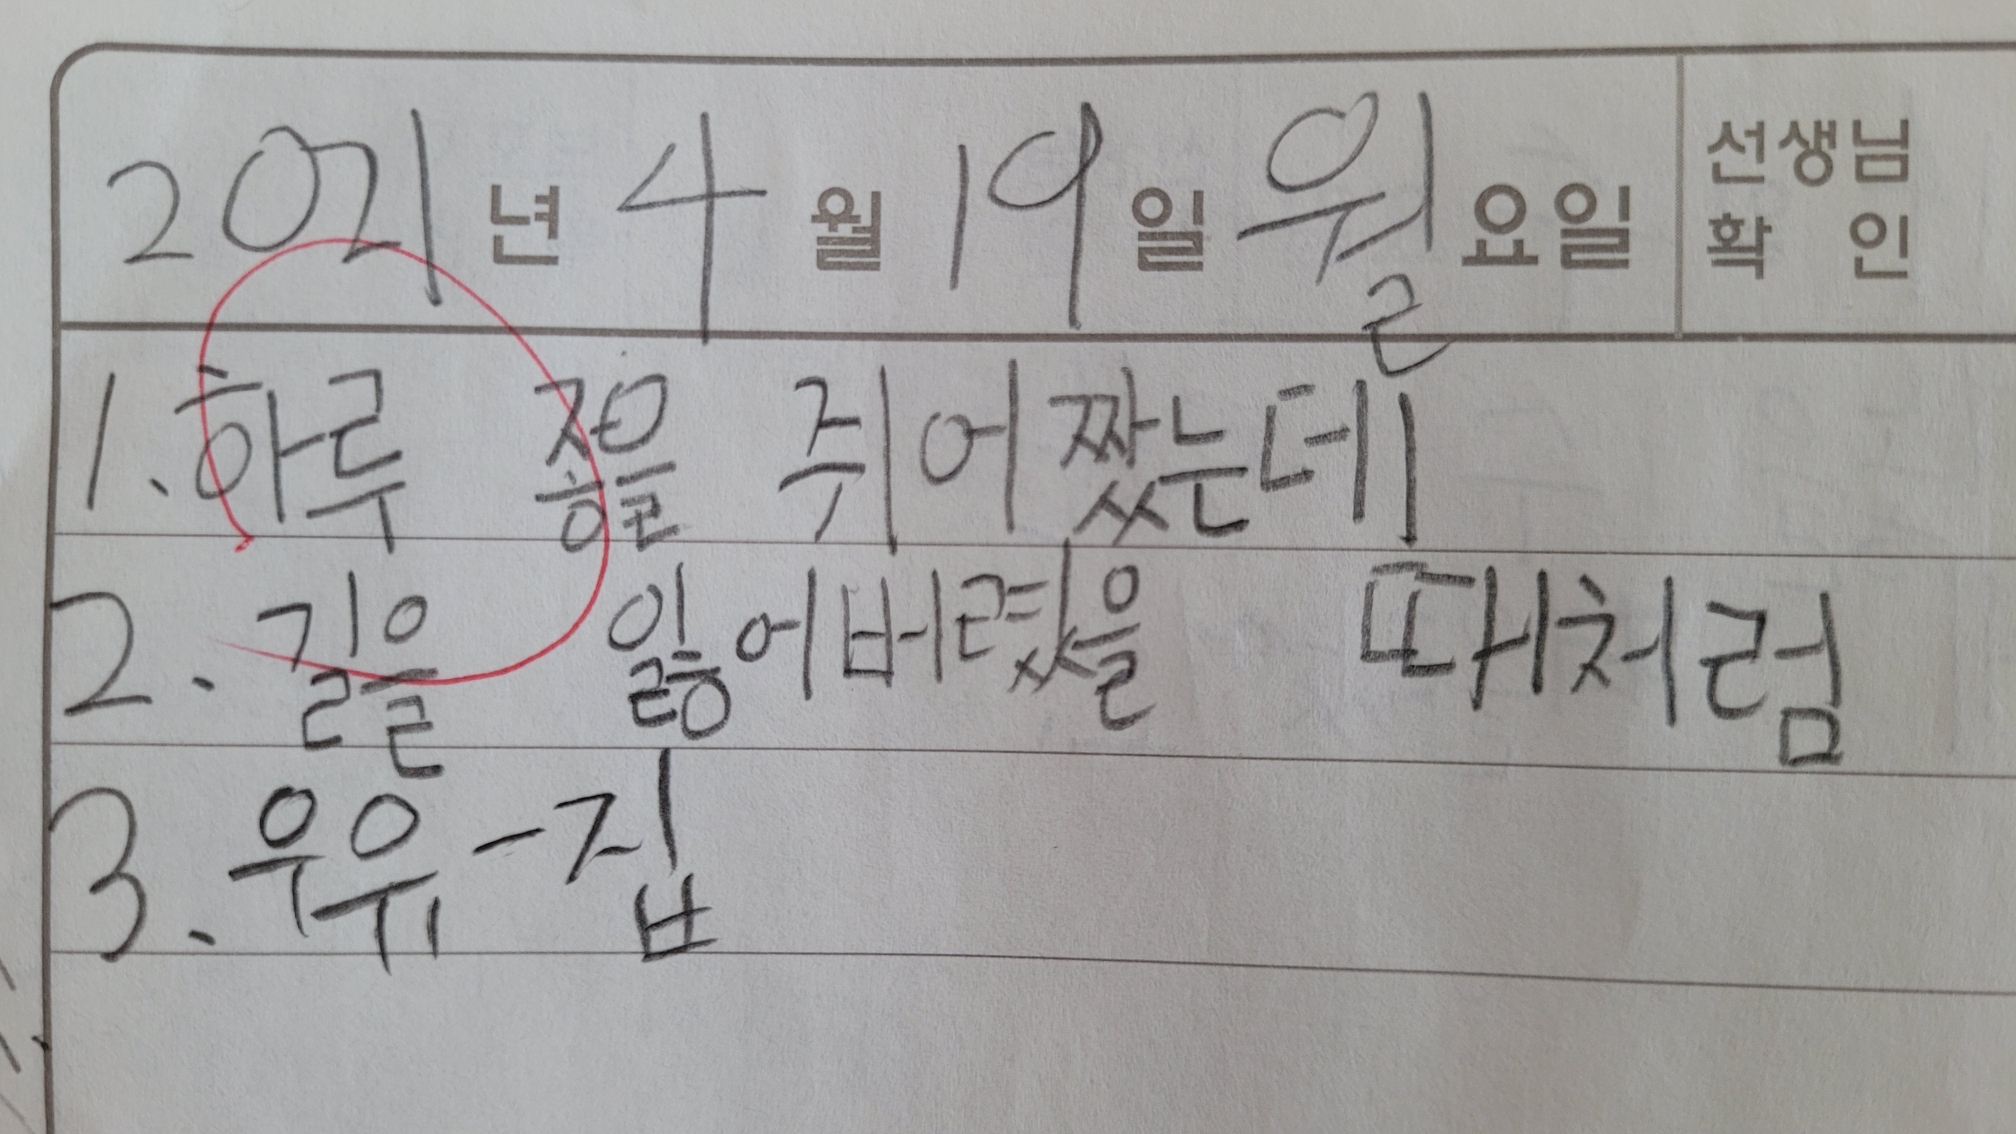 2021년 4월 19일 월요일 선생님 확인
1. 하루 젛을 쥐어짰는데
2. 길을 잃어버렸을 때처럼
3. 우유-집